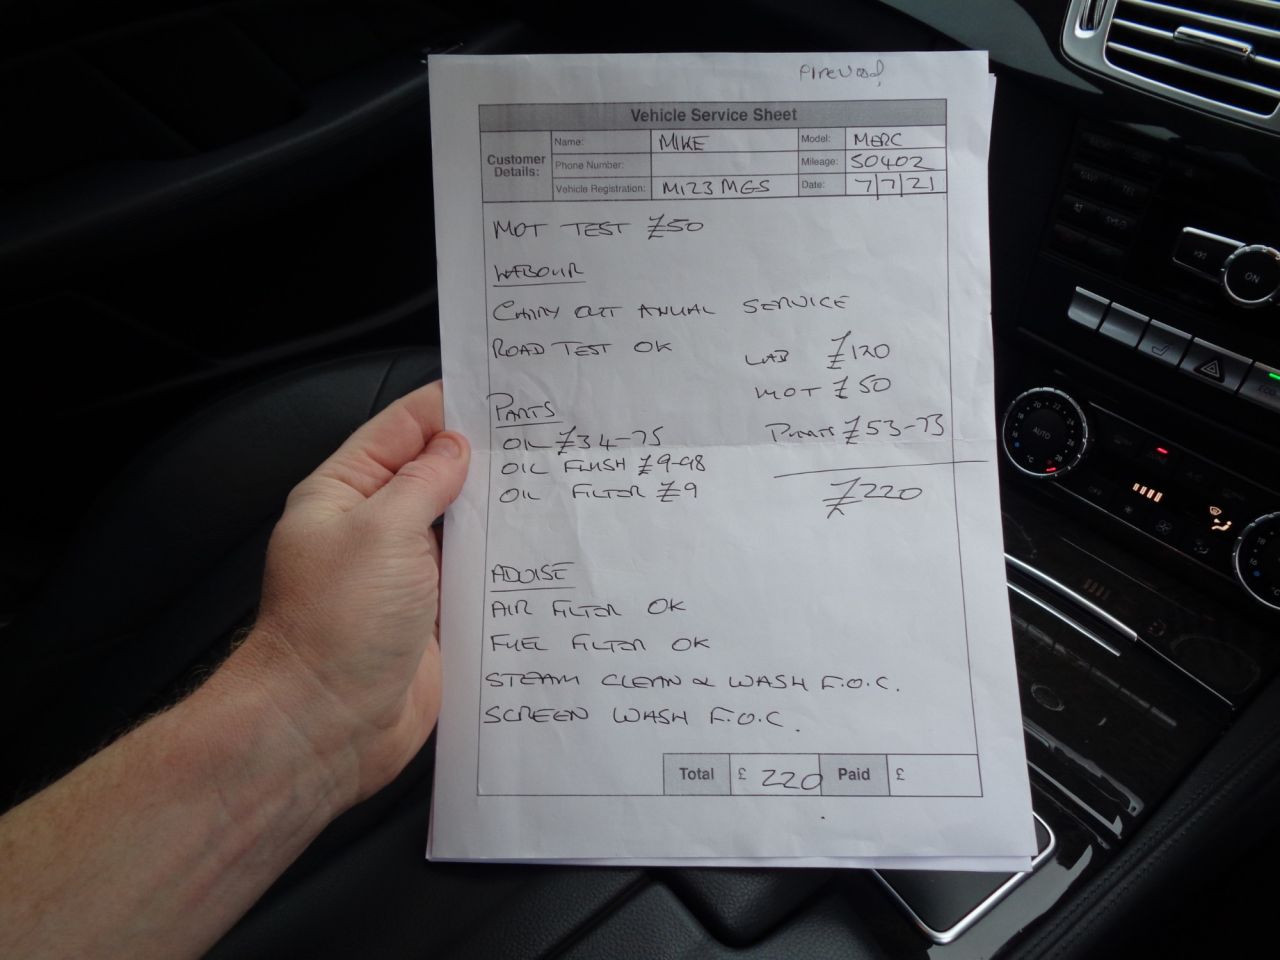 Vehicle Service Sheet
Customer Details: Name: MIKE Model: MERC
Phone Number: Mileage: 50402
Vehicle Registration: M123 MGS Date: 7/7/21
MOT TEST £50
LABOUR
CARRY OUT ANUAL SERVICE
ROAD TEST OK
LAB £120
MOT £50
PARTS £53-73
£220
PARTS
OIL £34-75
OIL FLUSH £9-98
OIL FILTER £9
ADVISE
AIR FILTER OK
FUEL FILTER OK
STEAM CLEAN & WASH F.O.C.
SCREEN WASH F.O.C.
Total £ 220 Paid £
ON
AUTO